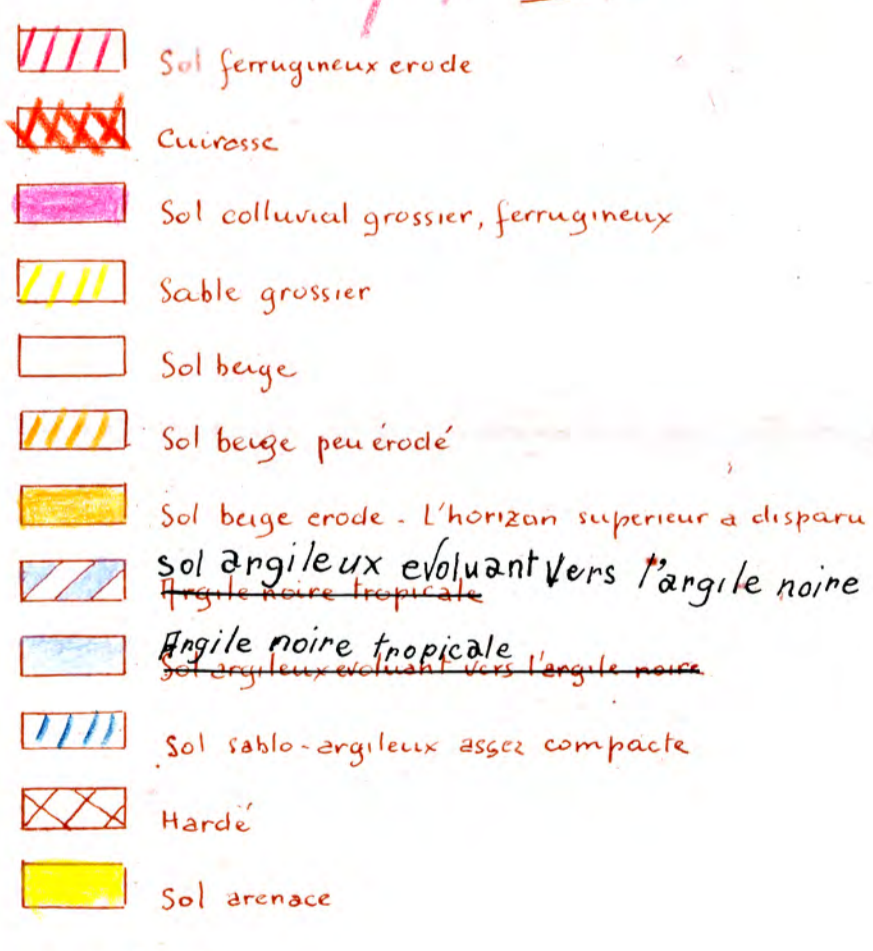 Sol ferrugineux erode
Cuirasse
Sol colluvial grossier, ferrugineux
Sable grossier
Sol beige
Sol beige peu érodé
Sol beige erode - L'horizon superieur a disparu
Sol argileux evoluant vers l'argile noire
Argile noire tropicale
Argile noire tropicale
Sol argileux evoluant vers l'argile noire
Sol sablo-argileux assez compacte
Hardé
Sol arenace